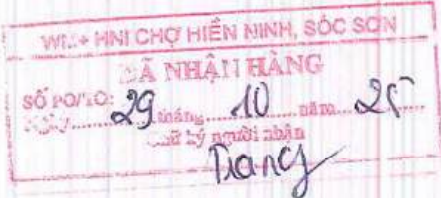 WM+ HNI CHỢ HIỀN NINH, SÓC SƠN
ĐÃ NHẬN HÀNG
SỐ PO/LO:
Ngày 29 tháng 10 năm 25
Chữ ký người nhận
Trang